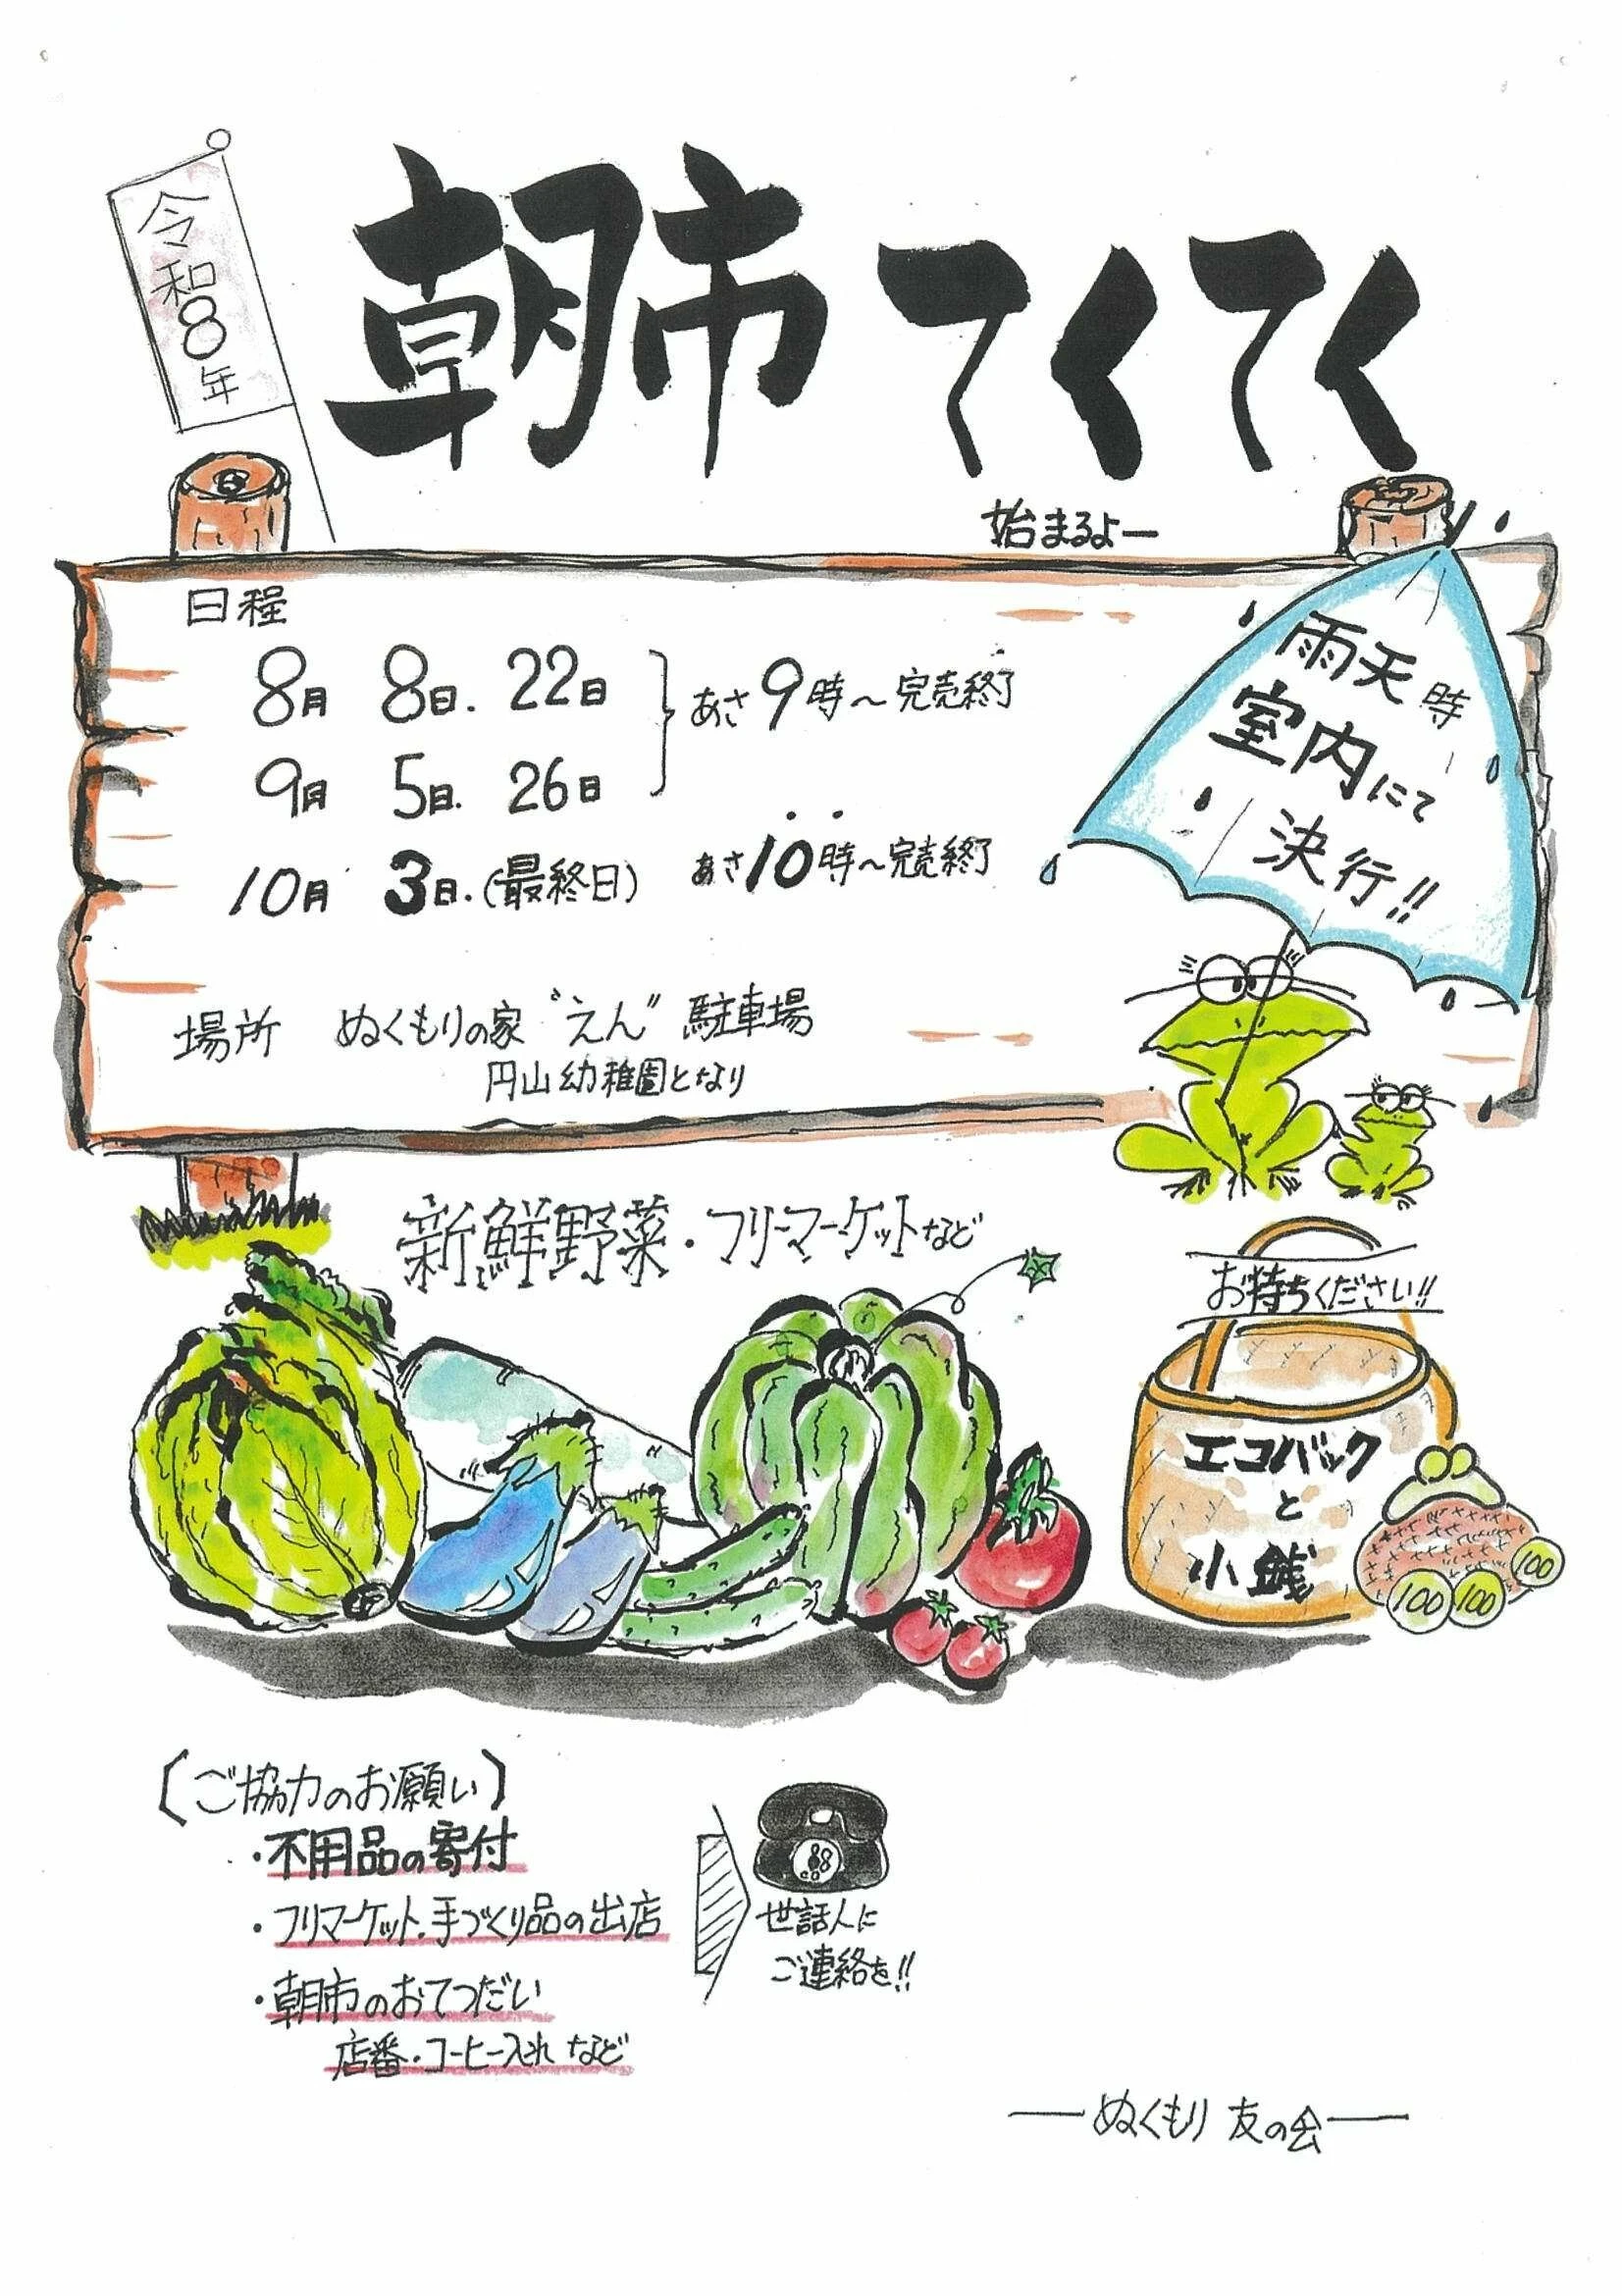 令和8年
朝市てくてく
始まるよー
日程
8月 8日. 22日
9月 5日. 26日
あさ9時～完売終了
10月 3日.(最終日) あさ10時～完売終了
雨天時
室内にて
決行!!
場所 ぬくもりの家“えん”駐車場
円山幼稚園となり
新鮮野菜・フリーマーケットなど
お持ちください!!
エコバック
と
小銭
100
100
100
〔ご協力のお願い〕
・不用品の寄付
・フリマーケット.手づくり品の出店
・朝市のおてつだい
店番・コーヒー入れ など
世話人に
ご連絡を!!
—ぬくもり 友の会—